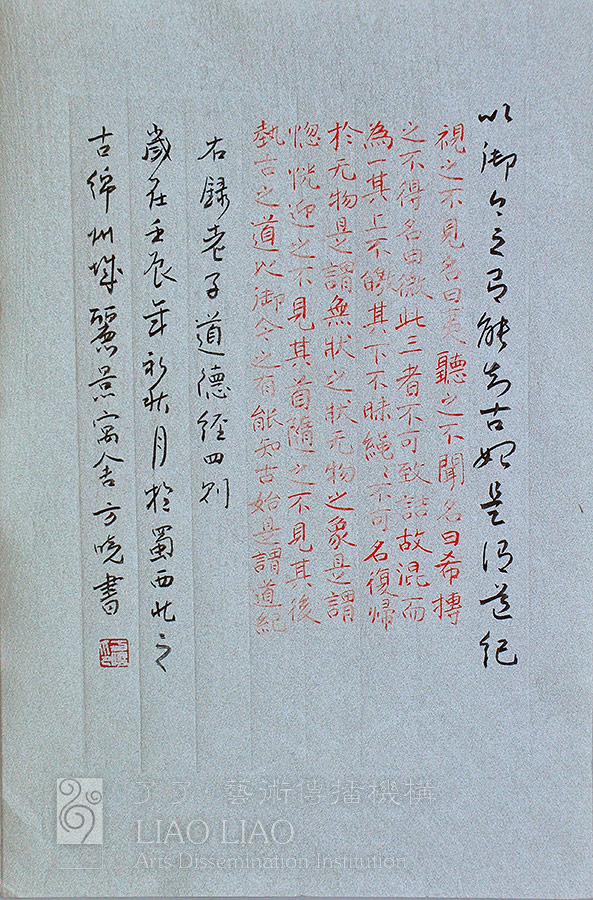 以御今之有能知古始是謂道紀
視之不見名曰夷聽之不聞名曰希摶
之不得名曰微此三者不可致詰故混而
為一其上不皦其下不昧繩〻不可名復歸
於无物是謂無狀之狀无物之象是謂
惚恍迎之不見其首隨之不見其後
執古之道以御今之有能知古始是謂道紀
右録老子道德經四則
歲在壬辰年初秋月於蜀西北之
古綿州城麗景寓舍方曉書
了了·藝術傳播機構
LIAO LIAO
Arts Dissemination Institution